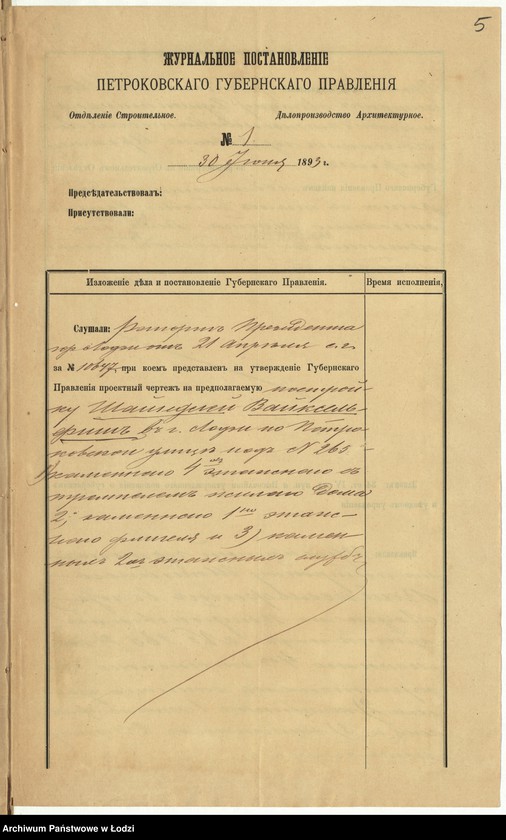 5
ЖУРНАЛЬНОЕ ПОСТАНОВЛЕНІЕ
ПЕТРОКОВСКАГО ГУБЕРНСКАГО ПРАВЛЕНІЯ
Отдѣленіе Строительное. Дѣлопроизводство Архитектурное.
№ 1
30 Іюня 1893 г.
Предсѣдательствовалъ:
Присутствовали:
Изложеніе дѣла и постановленіе Губернскаго Правленія. Время исполненія,
Слушали: Рапортъ Президента
гор. Лодзи отъ 21 Апрѣля с.г.
за № 10647, при коемъ представленъ на утвержденіе Губернскаго
Правленія проектный чертежъ на предполагаемую построй-
ку Вайксель-
фишъ въ г. Лодзи по Петро-
ковской улицѣ подъ № 265
1) каменнаго 4 этажнаго съ
жилаго дома
2) каменнаго 1но этаж-
наго флигеля и 3) камен-
ныхъ 2хъ этажныхъ службъ
Archiwum Państwowe w Łodzi